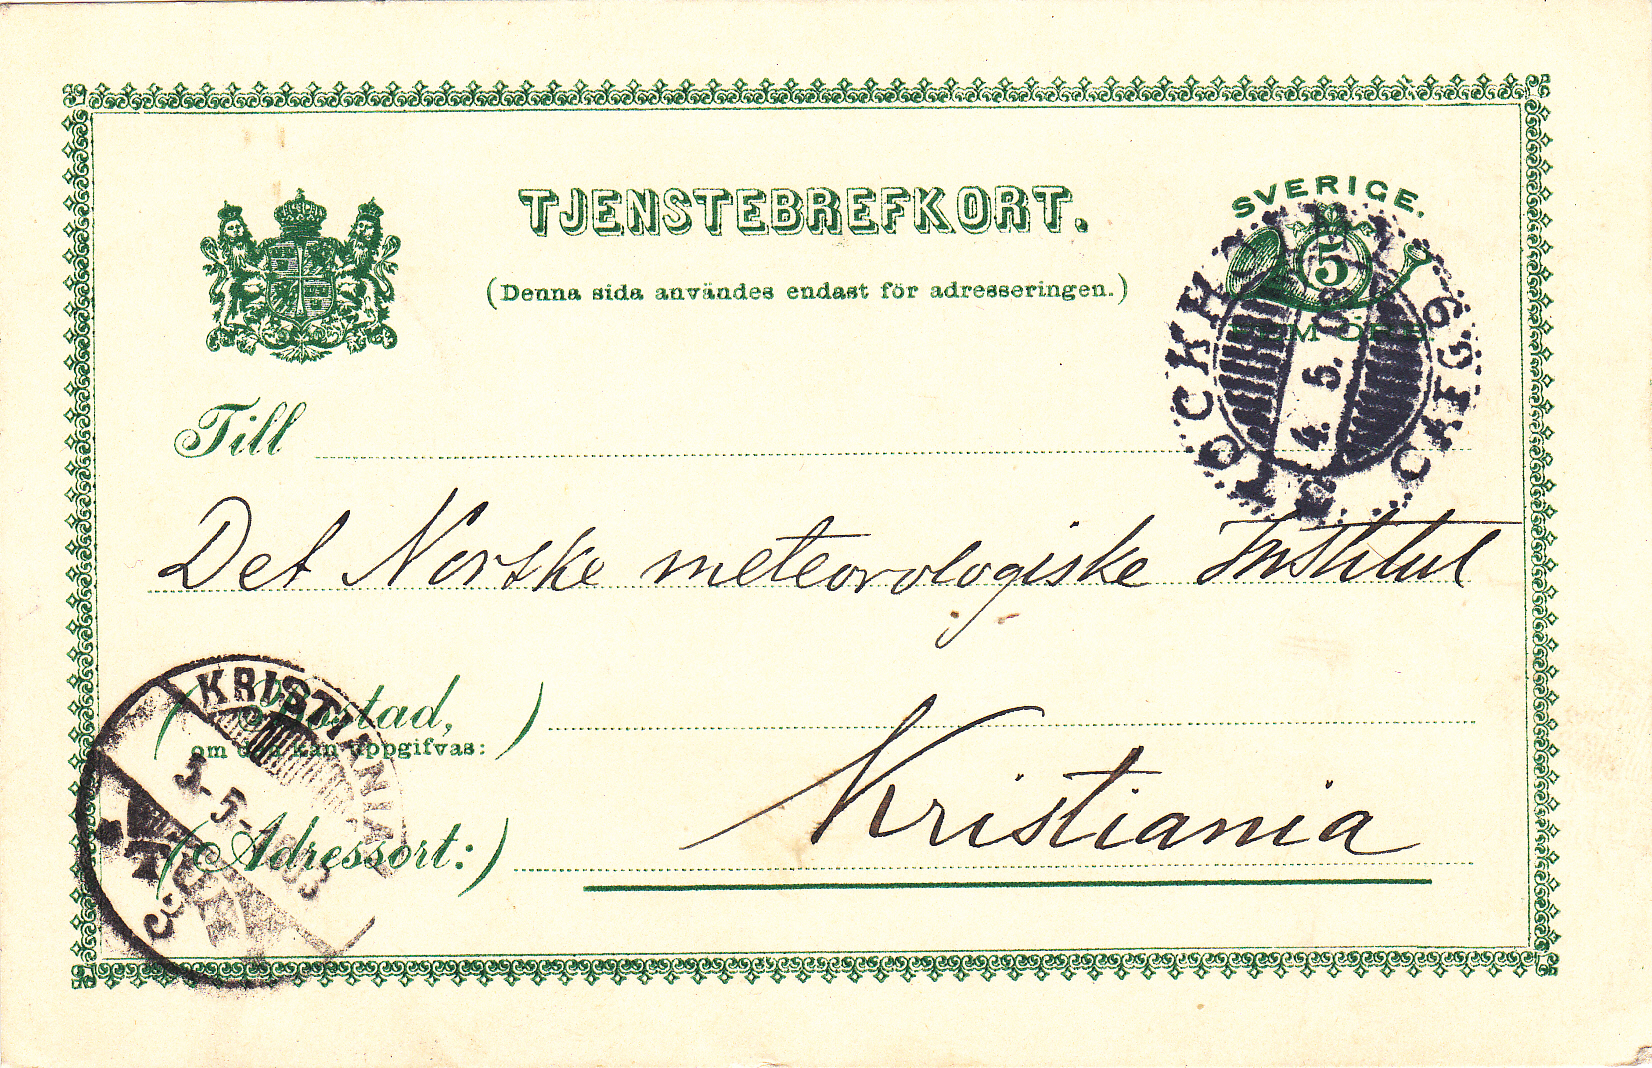 TJENSTEBREFKORT.
(Denna sida användes endast för adresseringen.)
SVERIGE.
5
FEM ÖRE
4. 5. 03
Till
Det Norske meteorologiske Institut
(Bostad,)
om den kan uppgifvas:
(Adressort:)
Kristiania
KRISTIANIA
5-5-1903
3